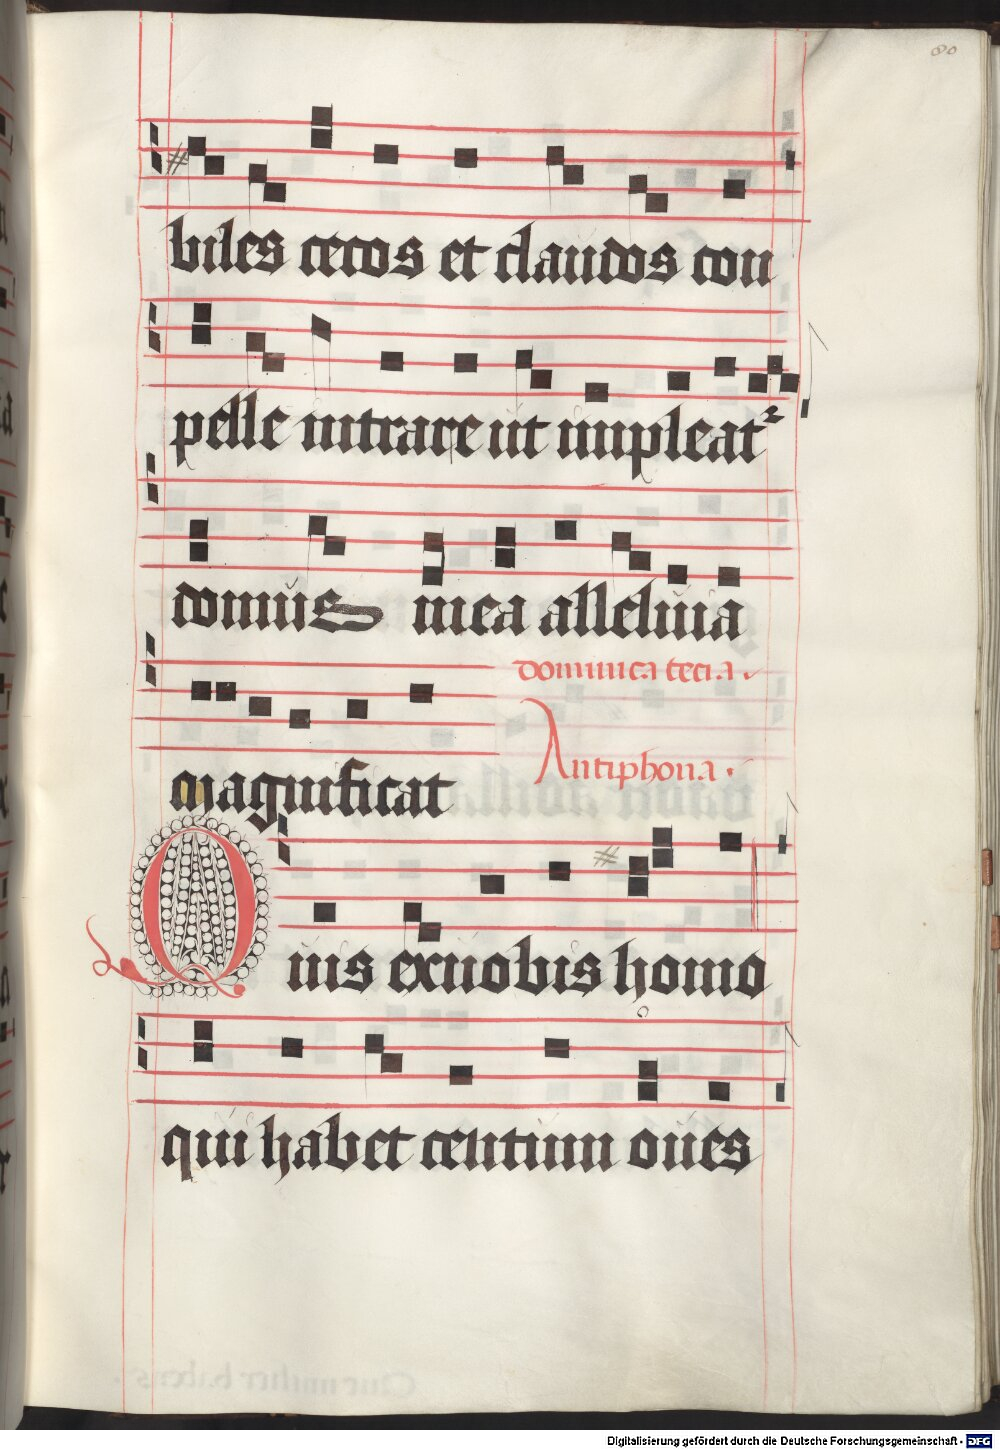 80
biles cecos et claudos con
pelle intrare ut impleat᷑
domus mea alleluia
dominica tecia.
magnificat
Antiphona.
Quis ex uobis homo
qui habet centum oues
Digitalisierung gefördert durch die Deutsche Forschungsgemeinschaft - DFG